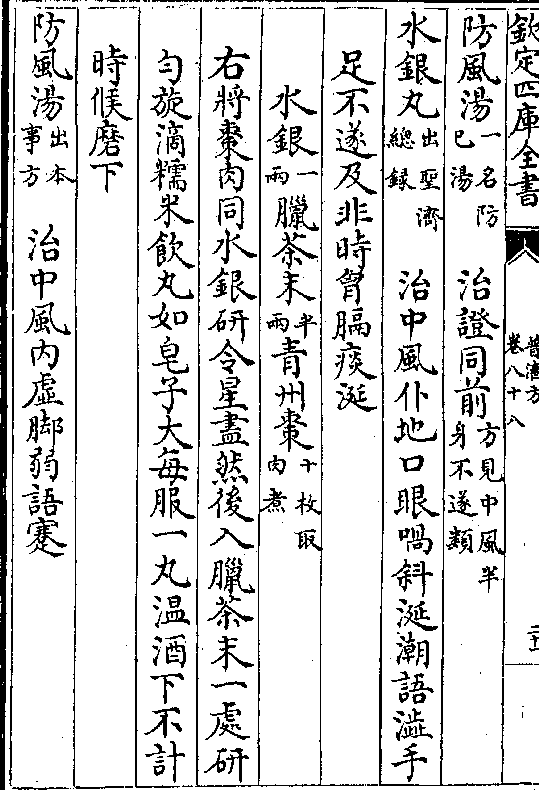 欽定四庫全書
普濟方
卷八十八
防風湯一名防已湯 治證同前方見中風半身不遂類
水銀丸出聖濟總録 治中風仆地口眼喎斜涎潮語澁手
足不遂及非時胷膈痰涎
水銀一兩臘茶末半兩青州棗十枚取肉煮
右將棗肉同水銀研令星盡然後入臘茶末一處研
勻旋滴糯米飲丸如皂子大每服一丸温酒下不計
時候磨下
防風湯出本事方 治中風内虛脚弱語蹇